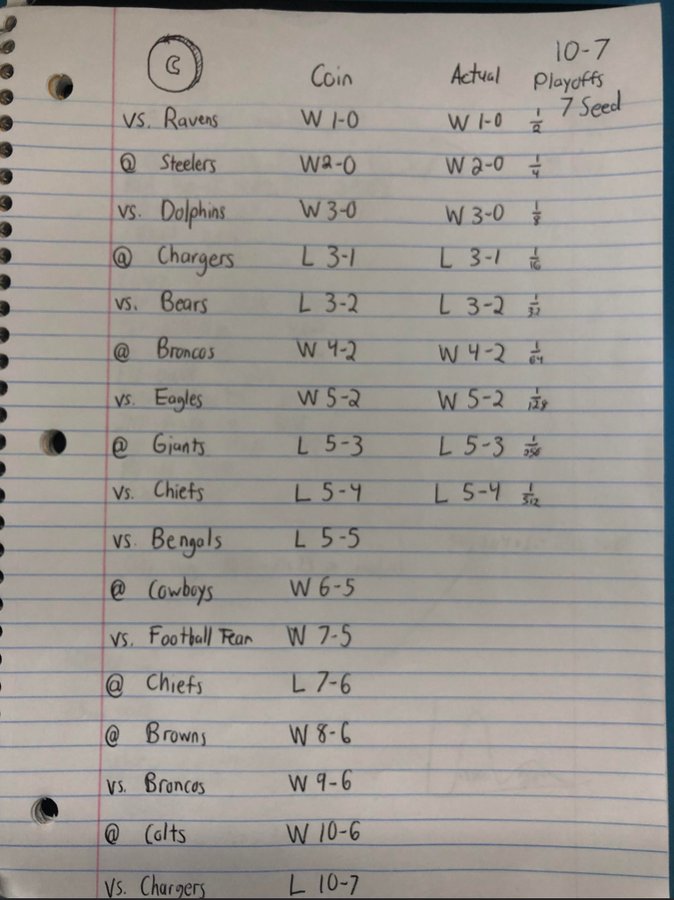 C Coin Actual 10-7
Playoffs
7 Seed
vs. Ravens W 1-0 W 1-0 1/2
@ Steelers W 2-0 W 2-0 1/4
vs. Dolphins W 3-0 W 3-0 1/8
@ Chargers L 3-1 L 3-1 1/16
vs. Bears L 3-2 L 3-2 1/32
@ Broncos W 4-2 W 4-2 1/64
vs. Eagles W 5-2 W 5-2 1/128
@ Giants L 5-3 L 5-3 1/256
vs. Chiefs L 5-4 L 5-4 1/512
vs. Bengals L 5-5
@ Cowboys W 6-5
vs. Football Team W 7-5
@ Chiefs L 7-6
@ Browns W 8-6
vs. Broncos W 9-6
@ Colts W 10-6
vs. Chargers L 10-7